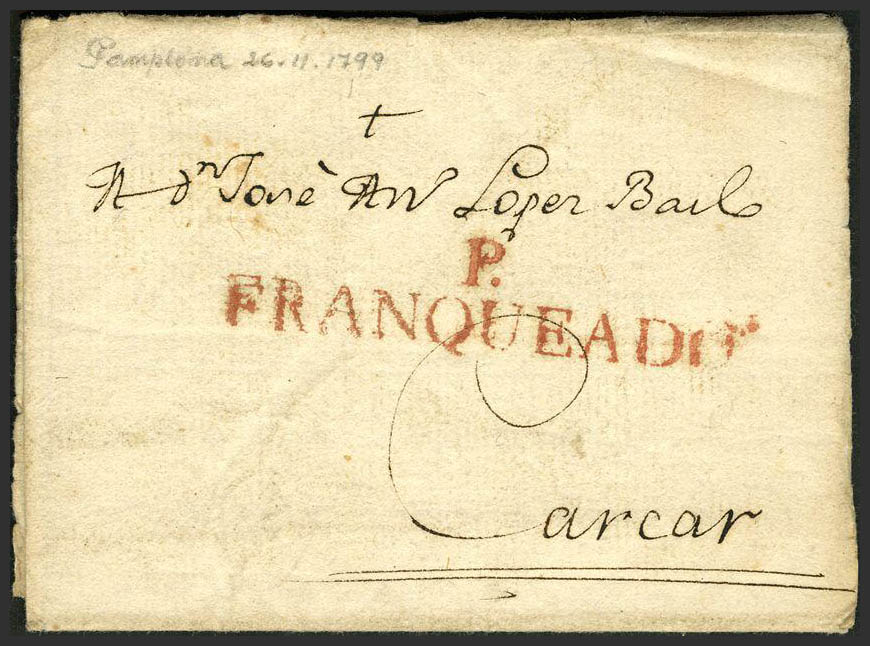 Pamplona 26.11.1799
A Dn Josè Anto Lopez Bailo
P.
FRANQUEADO
Carcar